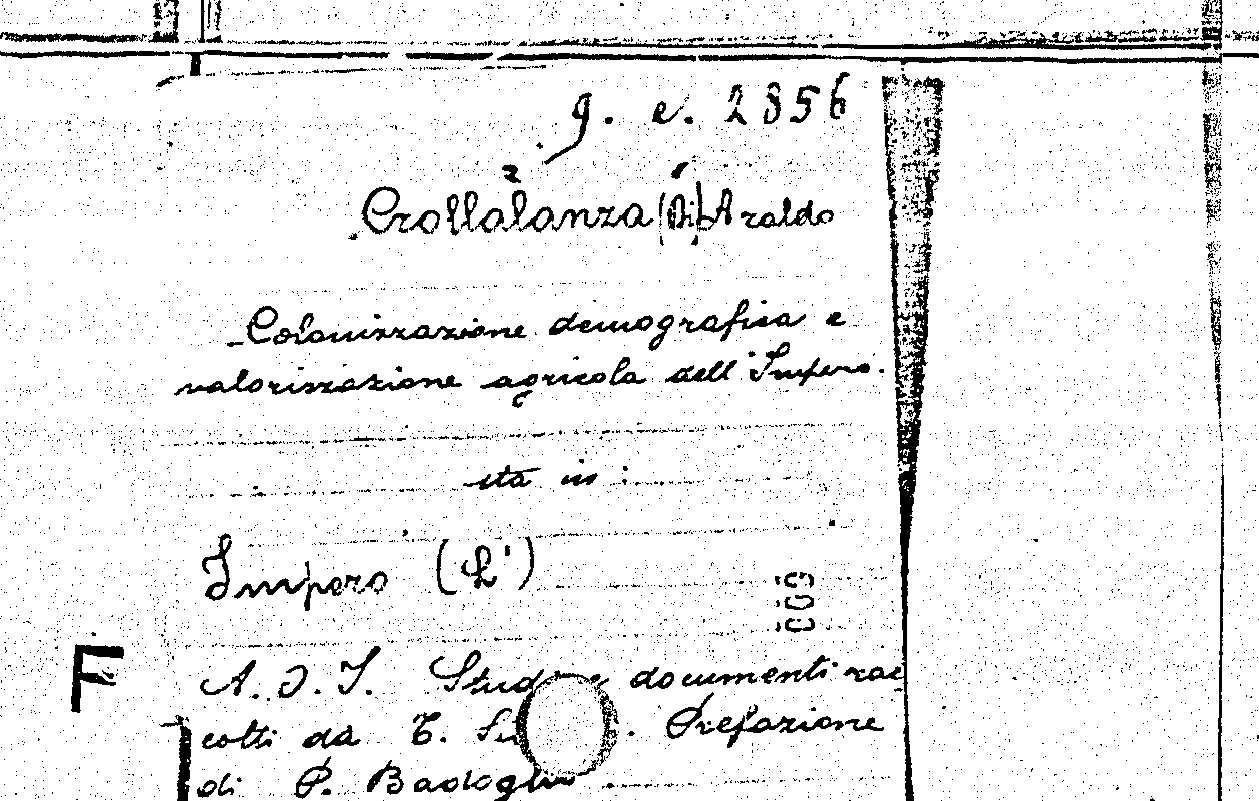 g. e. 2856
2 1
Crollalanza (Di) Araldo
Colonizzazione demografica e
valorizzazione agricola dell'Impero.
sta in:
Impero (L')
F
A. O. I. Studi e documenti rac
colti da T.
. Prefazione
di P. Badoglio